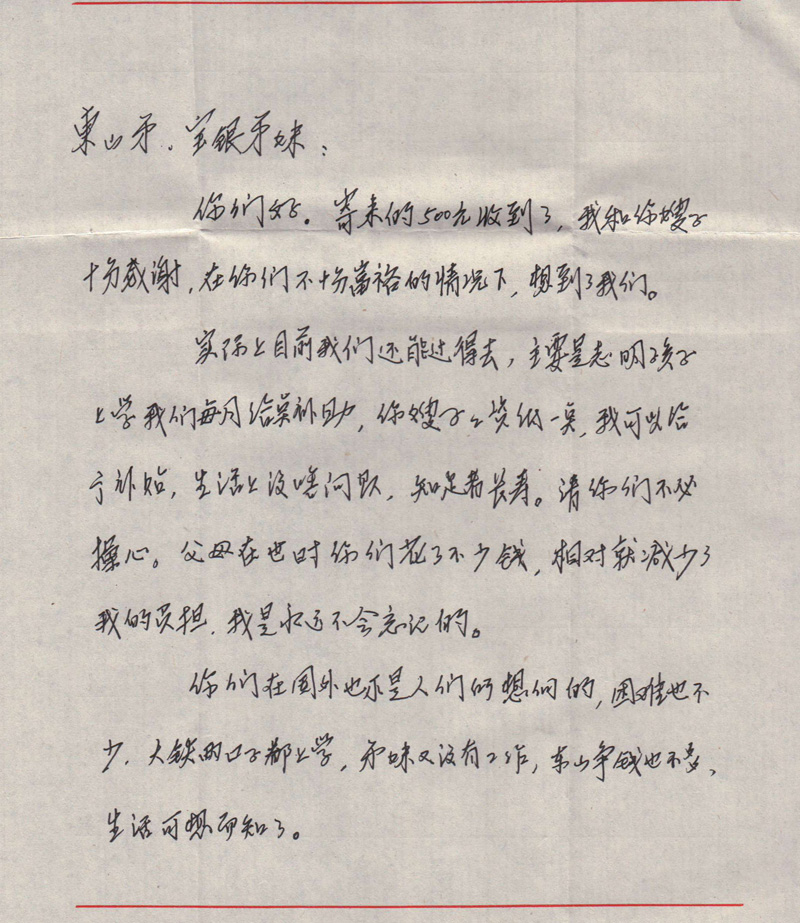 東山弟、宝银弟妹：
你们好。寄来的500元收到了，我和你嫂子
十分感谢，在你们不十分富裕的情况下，想到了我们。
实际上目前我们还能过得去，主要是志明孩子
上学我们每月给点补助，你嫂子工资低一点，我可以给
予补贴，生活上没啥问题，知足者长寿。请你们不必
操心。父母在世时你们花了不少钱，相对就减少了
我的负担，我是永远不会忘记的。
你们在国外也不是人们所想像的，困难也不
少，大铁两口子都上学，弟妹又没有工作，东山争钱也不多、
生活可想而知了。